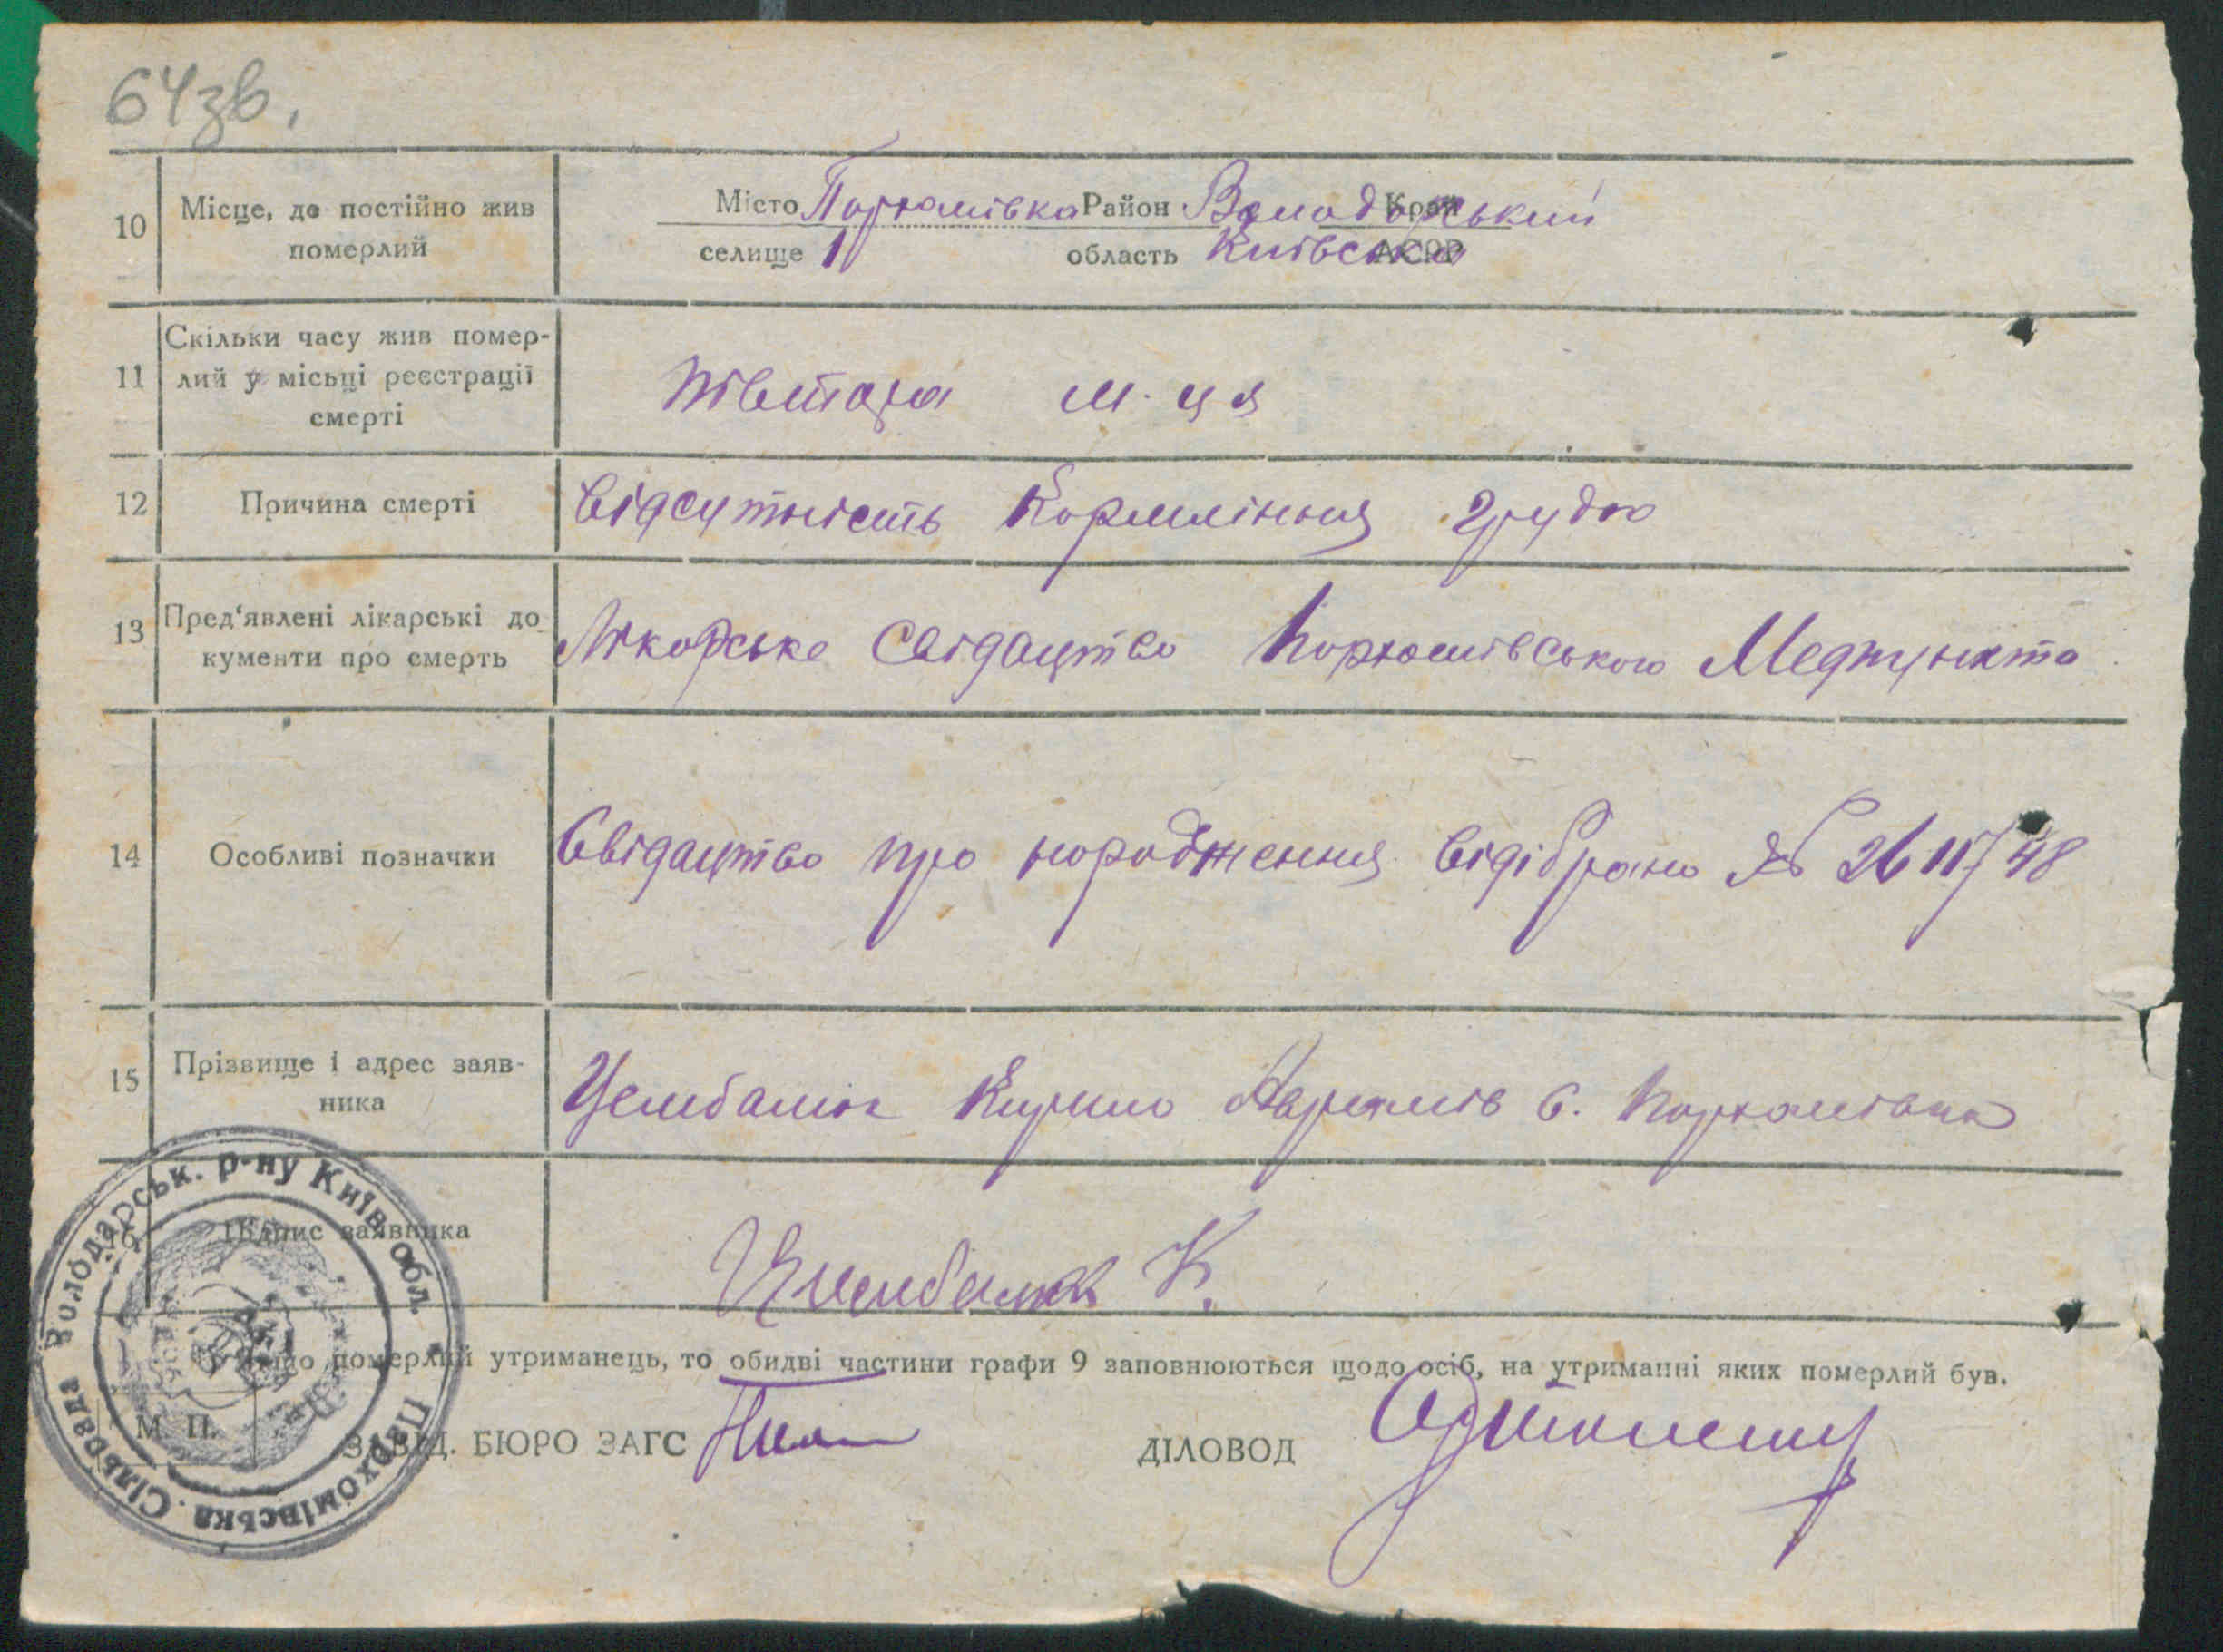 64зв.
10 Місце, де постійно жив померлий
Місто Пархомівка Район Володарський Край
селище 1 область Київська АСРР
11 Скільки часу жив помер-
лий у місьці реєстрації
смерті
Півтара м-ця
12 Причина смерті
Відсутність Кормління грудю
13 Пред'явлені лікарські до
кументи про смерть
Лікарське Свідацтво Пархомівського Медпункта
14 Особливі позначки
Свідацтво про народження відібрано №
15 Прізвище і адрес заяв-
ника
Цембалюк Кирило с. Пархомівка
16 Підпис заявника
Цимбалюк К.
якщо померлий утриманець, то обидві частини графи 9 заповнюються щодо осіб, на утриманні яких померлий був.
М. П.
ЗАВІД. БЮРО ЗАГС
ДІЛОВОД
Володарськ. р-ну Київ. обл.
Пархомівська Сільрада